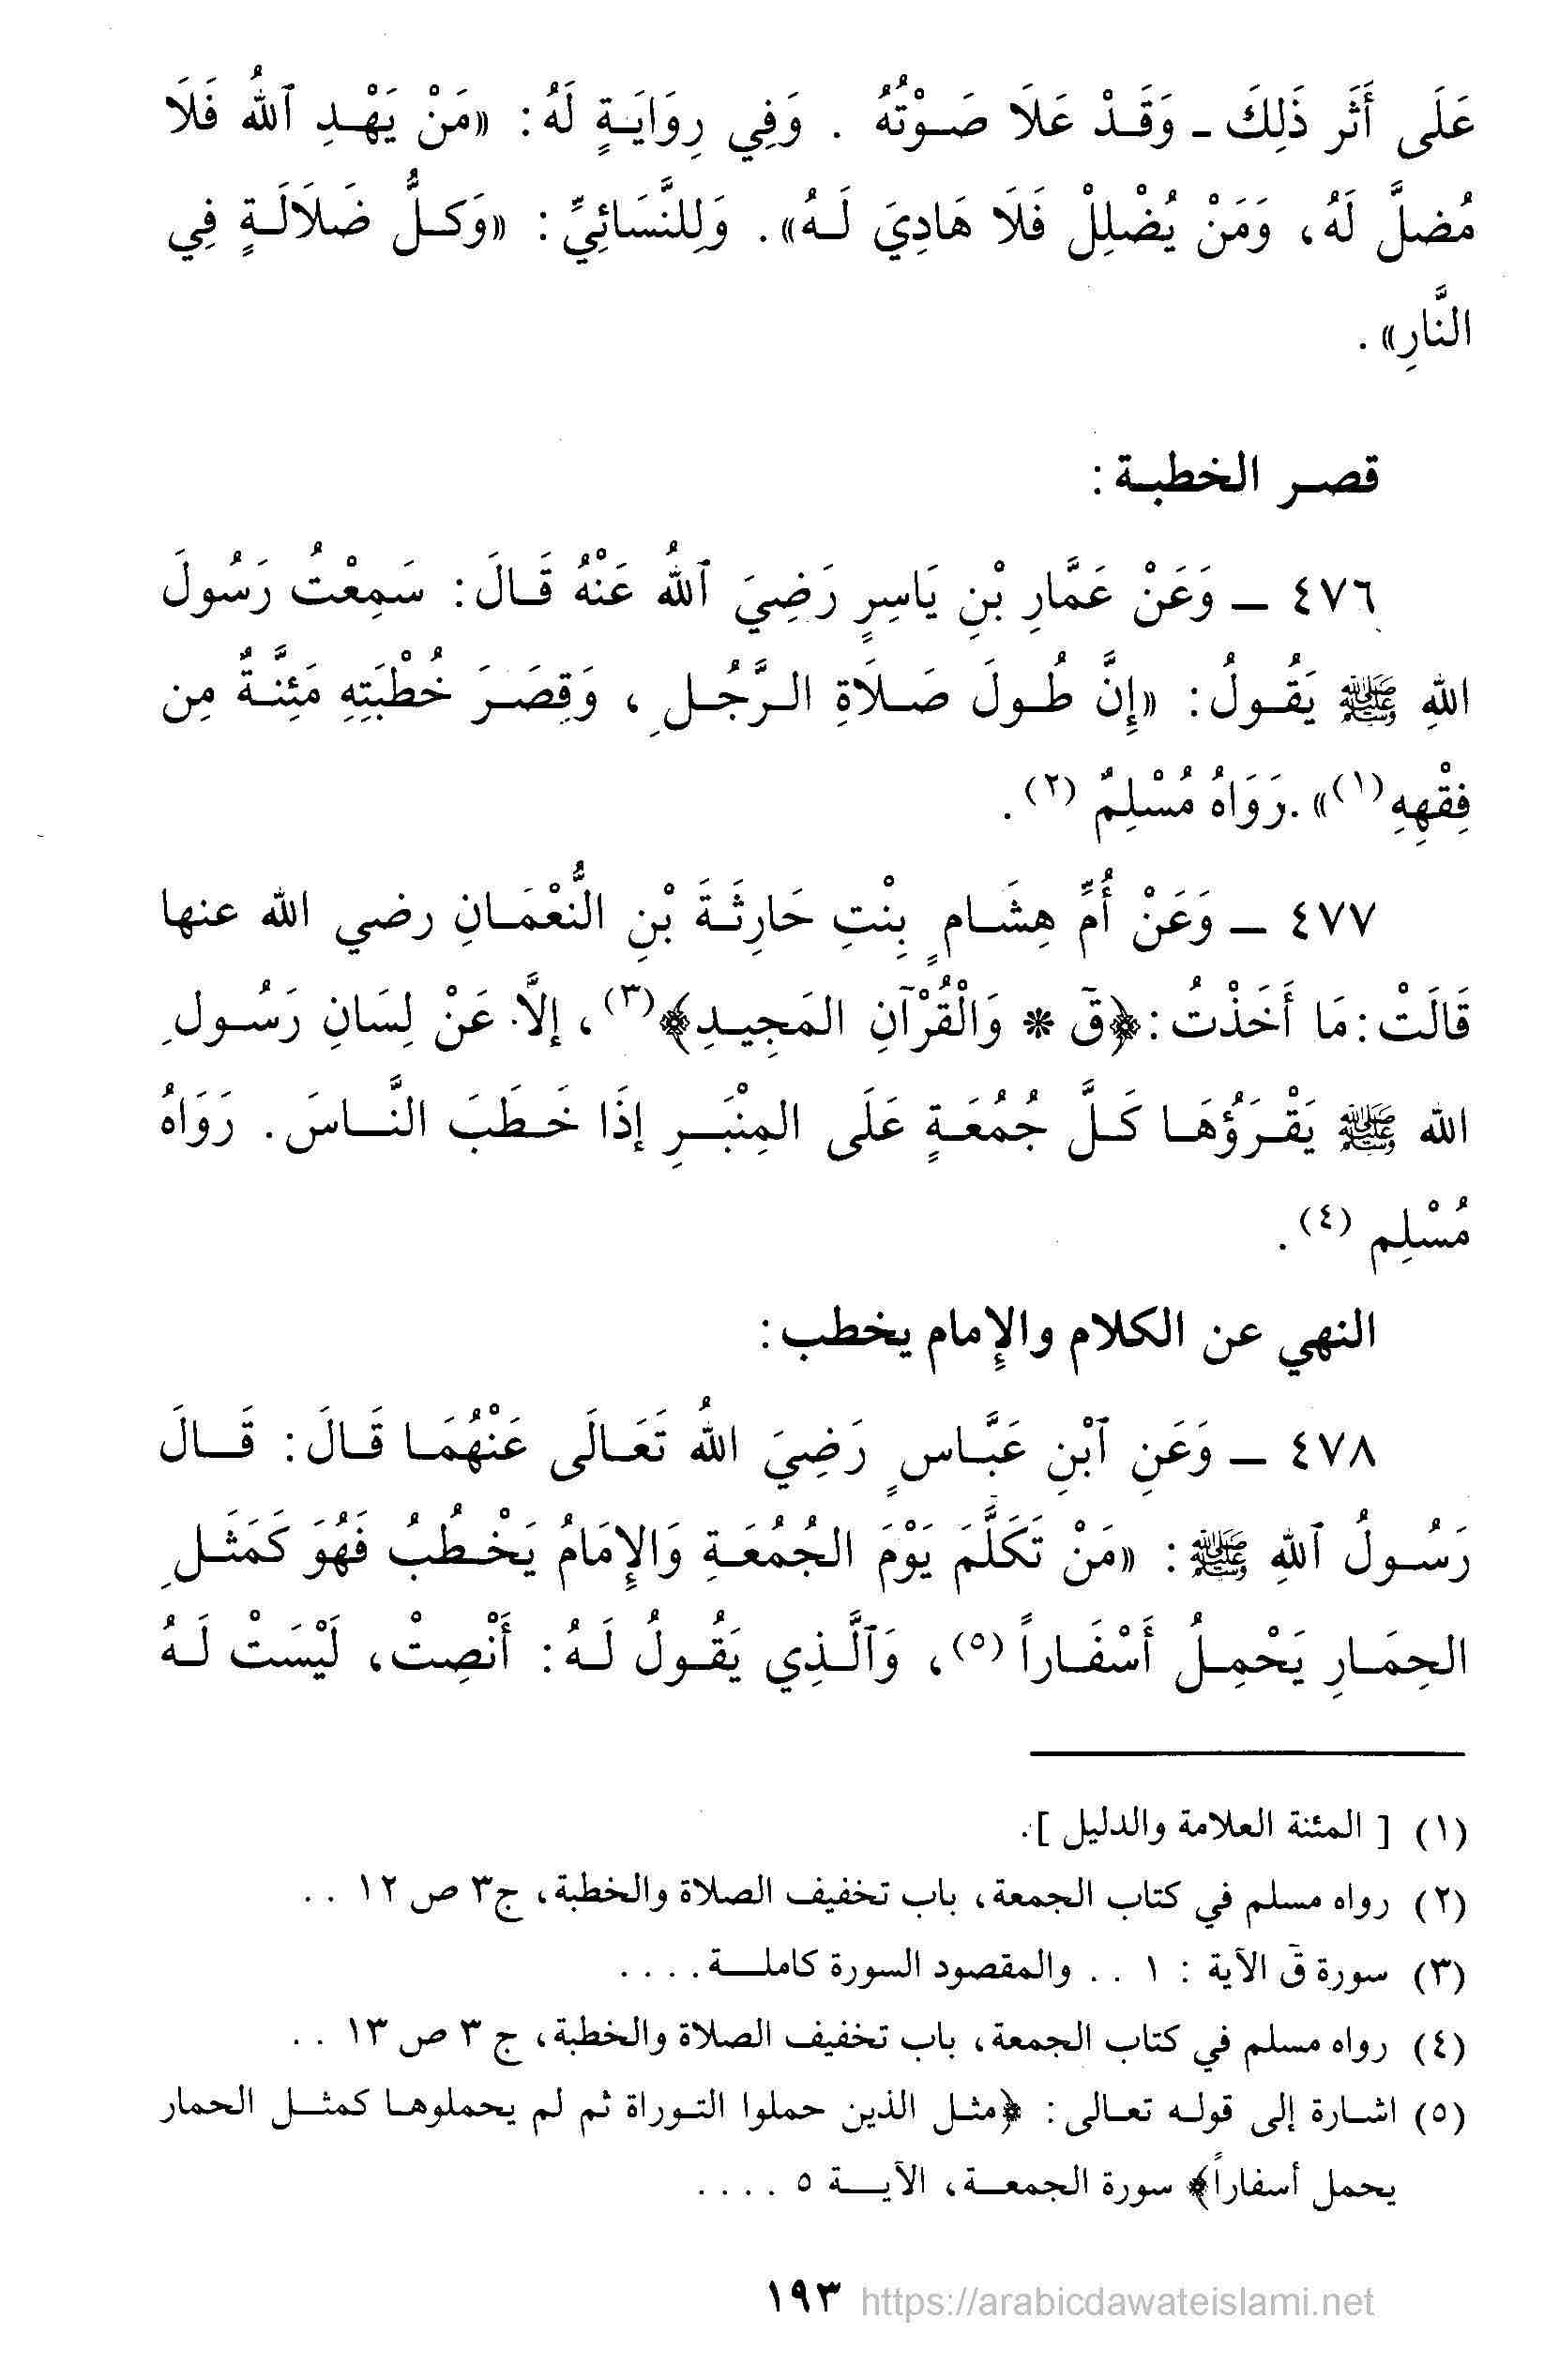 عَلَى أَثَر ذَلِكَ ـ وَقَدْ عَلَا صَوْتُهُ . وَفِي رِوَايَةٍ لَهُ: «مَنْ يَهْدِ ٱللهُ فَلَا
مُضلَّ لَهُ، وَمَنْ يُضْلِلْ فَلَا هَادِيَ لَهُ». وَلِلنَّسَائِيِّ: «وَكلُّ ضَلَالَةٍ فِي
النَّارِ» .
قصر الخطبة:
٤٧٦ ــ وَعَنْ عَمَّارِ بْنِ يَاسِرٍ رَضِيَ ٱللهُ عَنْهُ قَالَ: سَمِعْتُ رَسُولَ
اللهِ ﷺ يَقُولُ: «إِنَّ طُولَ صَلَاةِ الرَّجُلِ، وَقِصَرَ خُطْبَتِهِ مَئِنَّةٌ مِن
فِقْهِهِ(١)» .رَوَاهُ مُسْلِمٌ (٢).
٤٧٧ ــ وَعَنْ أُمِّ هِشَامٍ بِنْتِ حَارِثَةَ بْنِ النُّعْمَانِ رضي الله عنها
قَالَتْ: مَا أَخَذْتُ: ﴿قۤ * وَالْقُرْآنِ المَجِيدِ﴾(٣)، إلَّا عَنْ لِسَانِ رَسُولِ
الله ﷺ يَقْرَؤُهَا كَلَّ جُمُعَةٍ عَلَى المِنْبَرِ إذَا خَطَبَ النَّاسَ. رَوَاهُ
مُسْلِم (٤).
النهي عن الكلام والإِمام يخطب:
٤٧٨ ــ وَعَنِ ٱبْنِ عَبَّاسٍ رَضِيَ اللهُ تَعَالَى عَنْهُمَا قَالَ: قَالَ
رَسُولُ ٱللهِ ﷺ: «مَنْ تَكَلَّمَ يَوْمَ الجُمُعَةِ وَالإِمَامُ يَخْطُبُ فَهُوَ كَمَثَلِ
الحِمَارِ يَحْمِلُ أَسْفَاراً (٥)، وَٱلَّذِي يَقُولُ لَهُ: أَنْصِتْ، لَيْسَتْ لَهُ
(١) [ المئنة العلامة والدليل ].
(٢) رواه مسلم في كتاب الجمعة، باب تخفيف الصلاة والخطبة، ج٣ ص ١٢ . .
(٣) سورة قۤ الآية : ١ . . والمقصود السورة كاملة . . . .
(٤) رواه مسلم في كتاب الجمعة، باب تخفيف الصلاة والخطبة، ج ٣ ص ١٣ . .
(٥) اشارة إلى قوله تعالى: ﴿مثل الذين حملوا التوراة ثم لم يحملوها كمثل الحمار
يحمل أسفاراً﴾ سورة الجمعة، الآية ٥ . . . .
١٩٣ https://arabicdawateislami.net